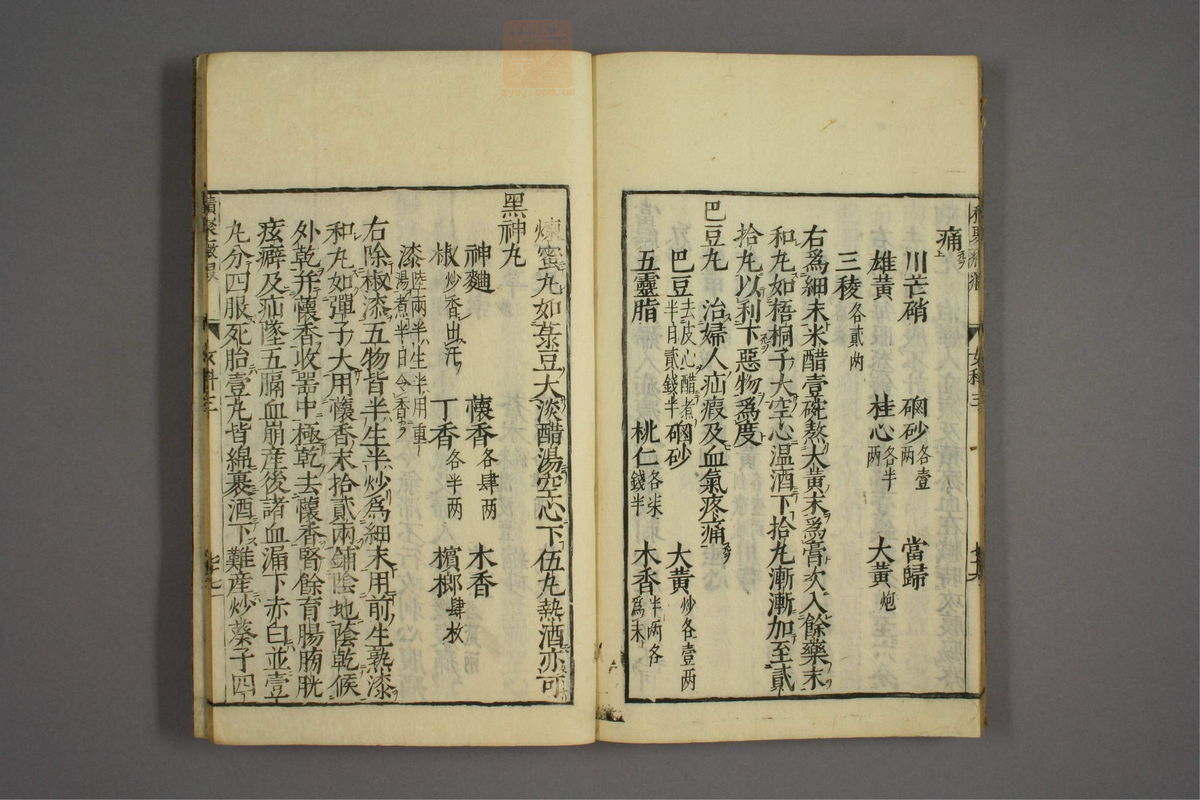 痛
川芒硝 硇砂各壹两 當歸
雄黃 桂心各半两 大黃炮
三稜各貳两
右爲細末米醋壹碗熬大黃末爲膏次入餘藥末
和丸如梧桐子大空心温酒下拾丸漸漸加至貳
拾丸以利下惡物爲度
巴豆丸 治婦人疝瘕及血氣疼痛
巴豆去皮心醋煮半日貳錢半 硇砂 大黃炒各壹两
五靈脂 桃仁各柒錢半 木香半两各爲末
煉蜜丸如菉豆大淡醋湯空心下伍丸熱酒亦可
黑神丸
神麯 懷香各肆两 木香
椒炒香出汗 丁香各半两 檳榔肆枚
漆陸兩半生半用重湯煮半日令香
右除椒漆五物皆半生半炒爲細末用前生熟漆
和丸如彈子大用懷香末拾貳兩鋪陰地蔭乾候
外乾并懷香收器中極乾去懷香腎餘育腸膀胱
痃癖及疝墜五膈血崩産後諸血漏下赤白並壹
丸分四服死胎壹丸皆綿裹酒下難産炒葵子四